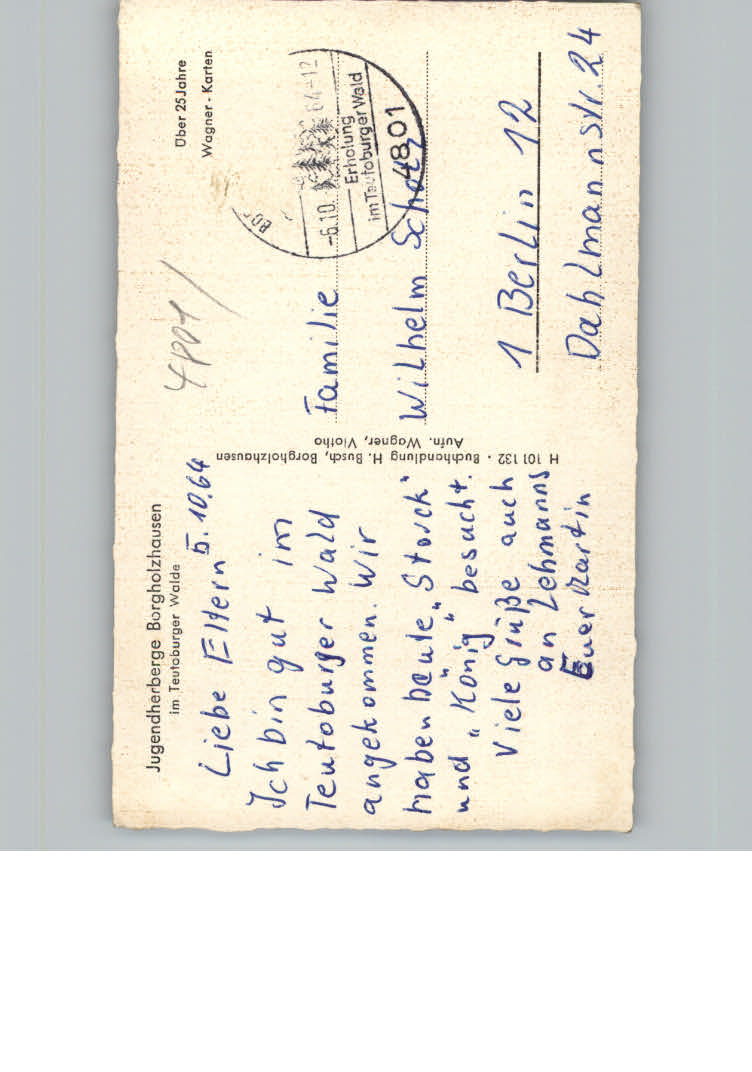 Jugendherberge Borgholzhausen
im Teutoburger Walde
Liebe Eltern 5.10.64
Ich bin gut im
Teutoburger Wald
angekommen. Wir
haben heute „Storck“
und „König“ besucht.
Viele Grüße auch
an Lehmanns
Euer Martin
H 101 132 · Buchhandlung H. Busch, Borgholzhausen
Aufn. Wagner, Vlotho
Über 25 Jahre
Wagner-Karten
4801
-6.10. 64-12
Erholung
im Teutoburger Wald
4801
Familie
Wilhelm
1 Berlin 12
Dahlmannstr. 24